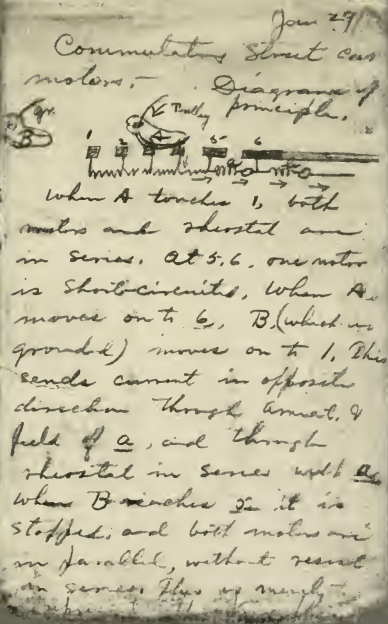 Jan 29
Commutating Street car
motors.- Diagram of
principle.
gr. Trolly
B A
1 2 5 6
a
When A touches 1, both
motors and rheostat are
in series. At 5,6, one motor
is Short-circuited. When A
moves on to 6, B (which is
grounded) moves on to 1. This
sends current in opposite
direction through armat. &
field of a, and through
rheostat in series with a.
When B reaches 5 it is
stopped, and both motors are
in parallel, without resist
in series. This is merely